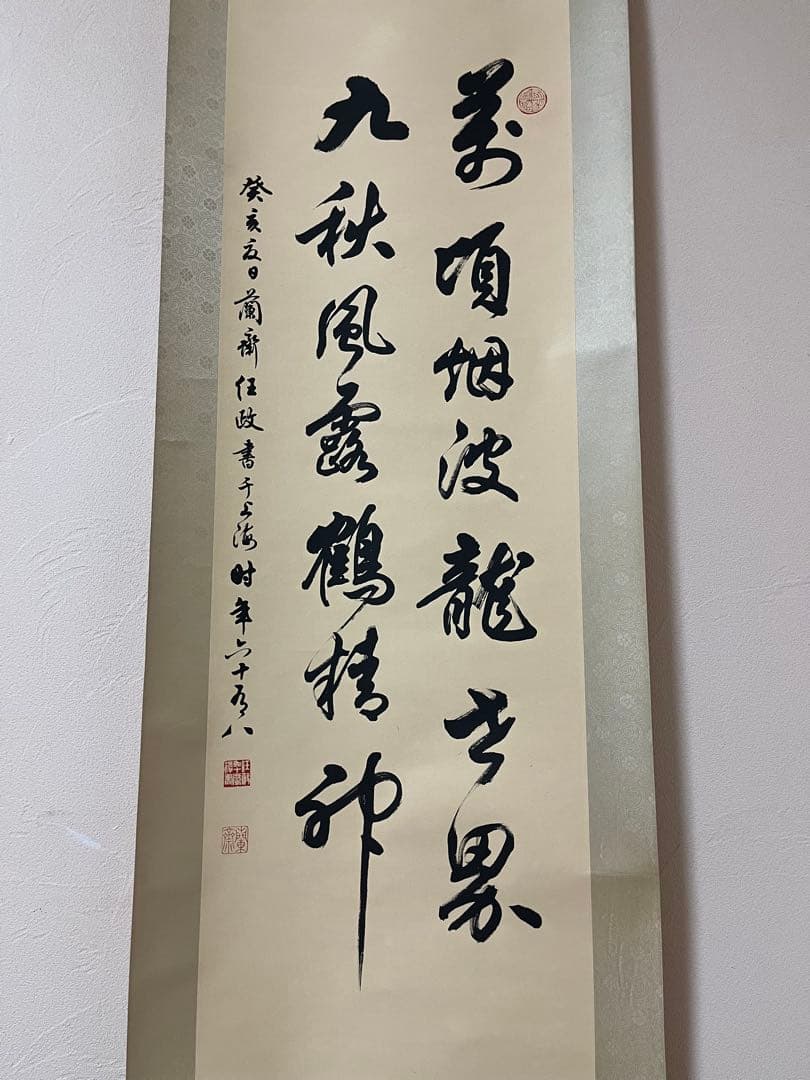 萬頃烟波龍世界
九秋風露鶴精神
癸亥夏日蘭齋任政書于上海時年六十有八